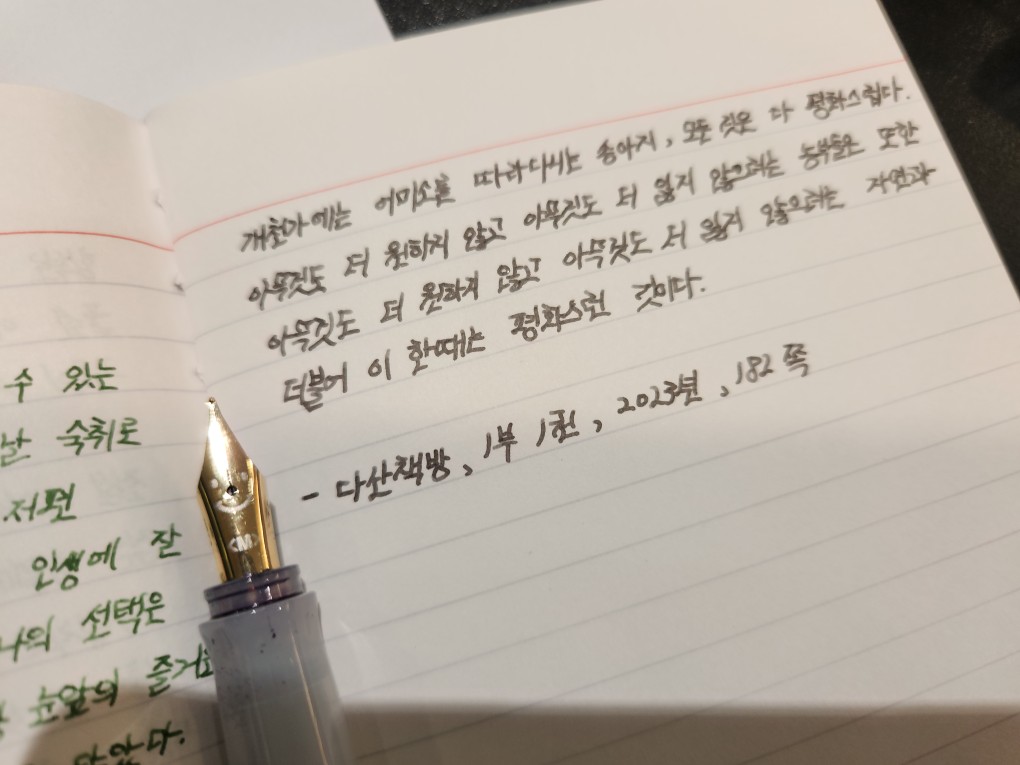 수 있는
날 숙취로
저편
인생에 잘
나의 선택은
눈앞의
않았다.
개천가에는 어미소를 따라다니는 송아지, 모든 것은 다 평화스럽다.
아무것도 더 원하지 않고 아무것도 더 잃지 않으려는 농부들은 또한
아무것도 더 원하지 않고 아무것도 더 잃지 않으려는 자연과
더불어 이 한때는 평화스런 것이다.
- 다산책방, 1부 1권, 2023년, 182쪽
<M>